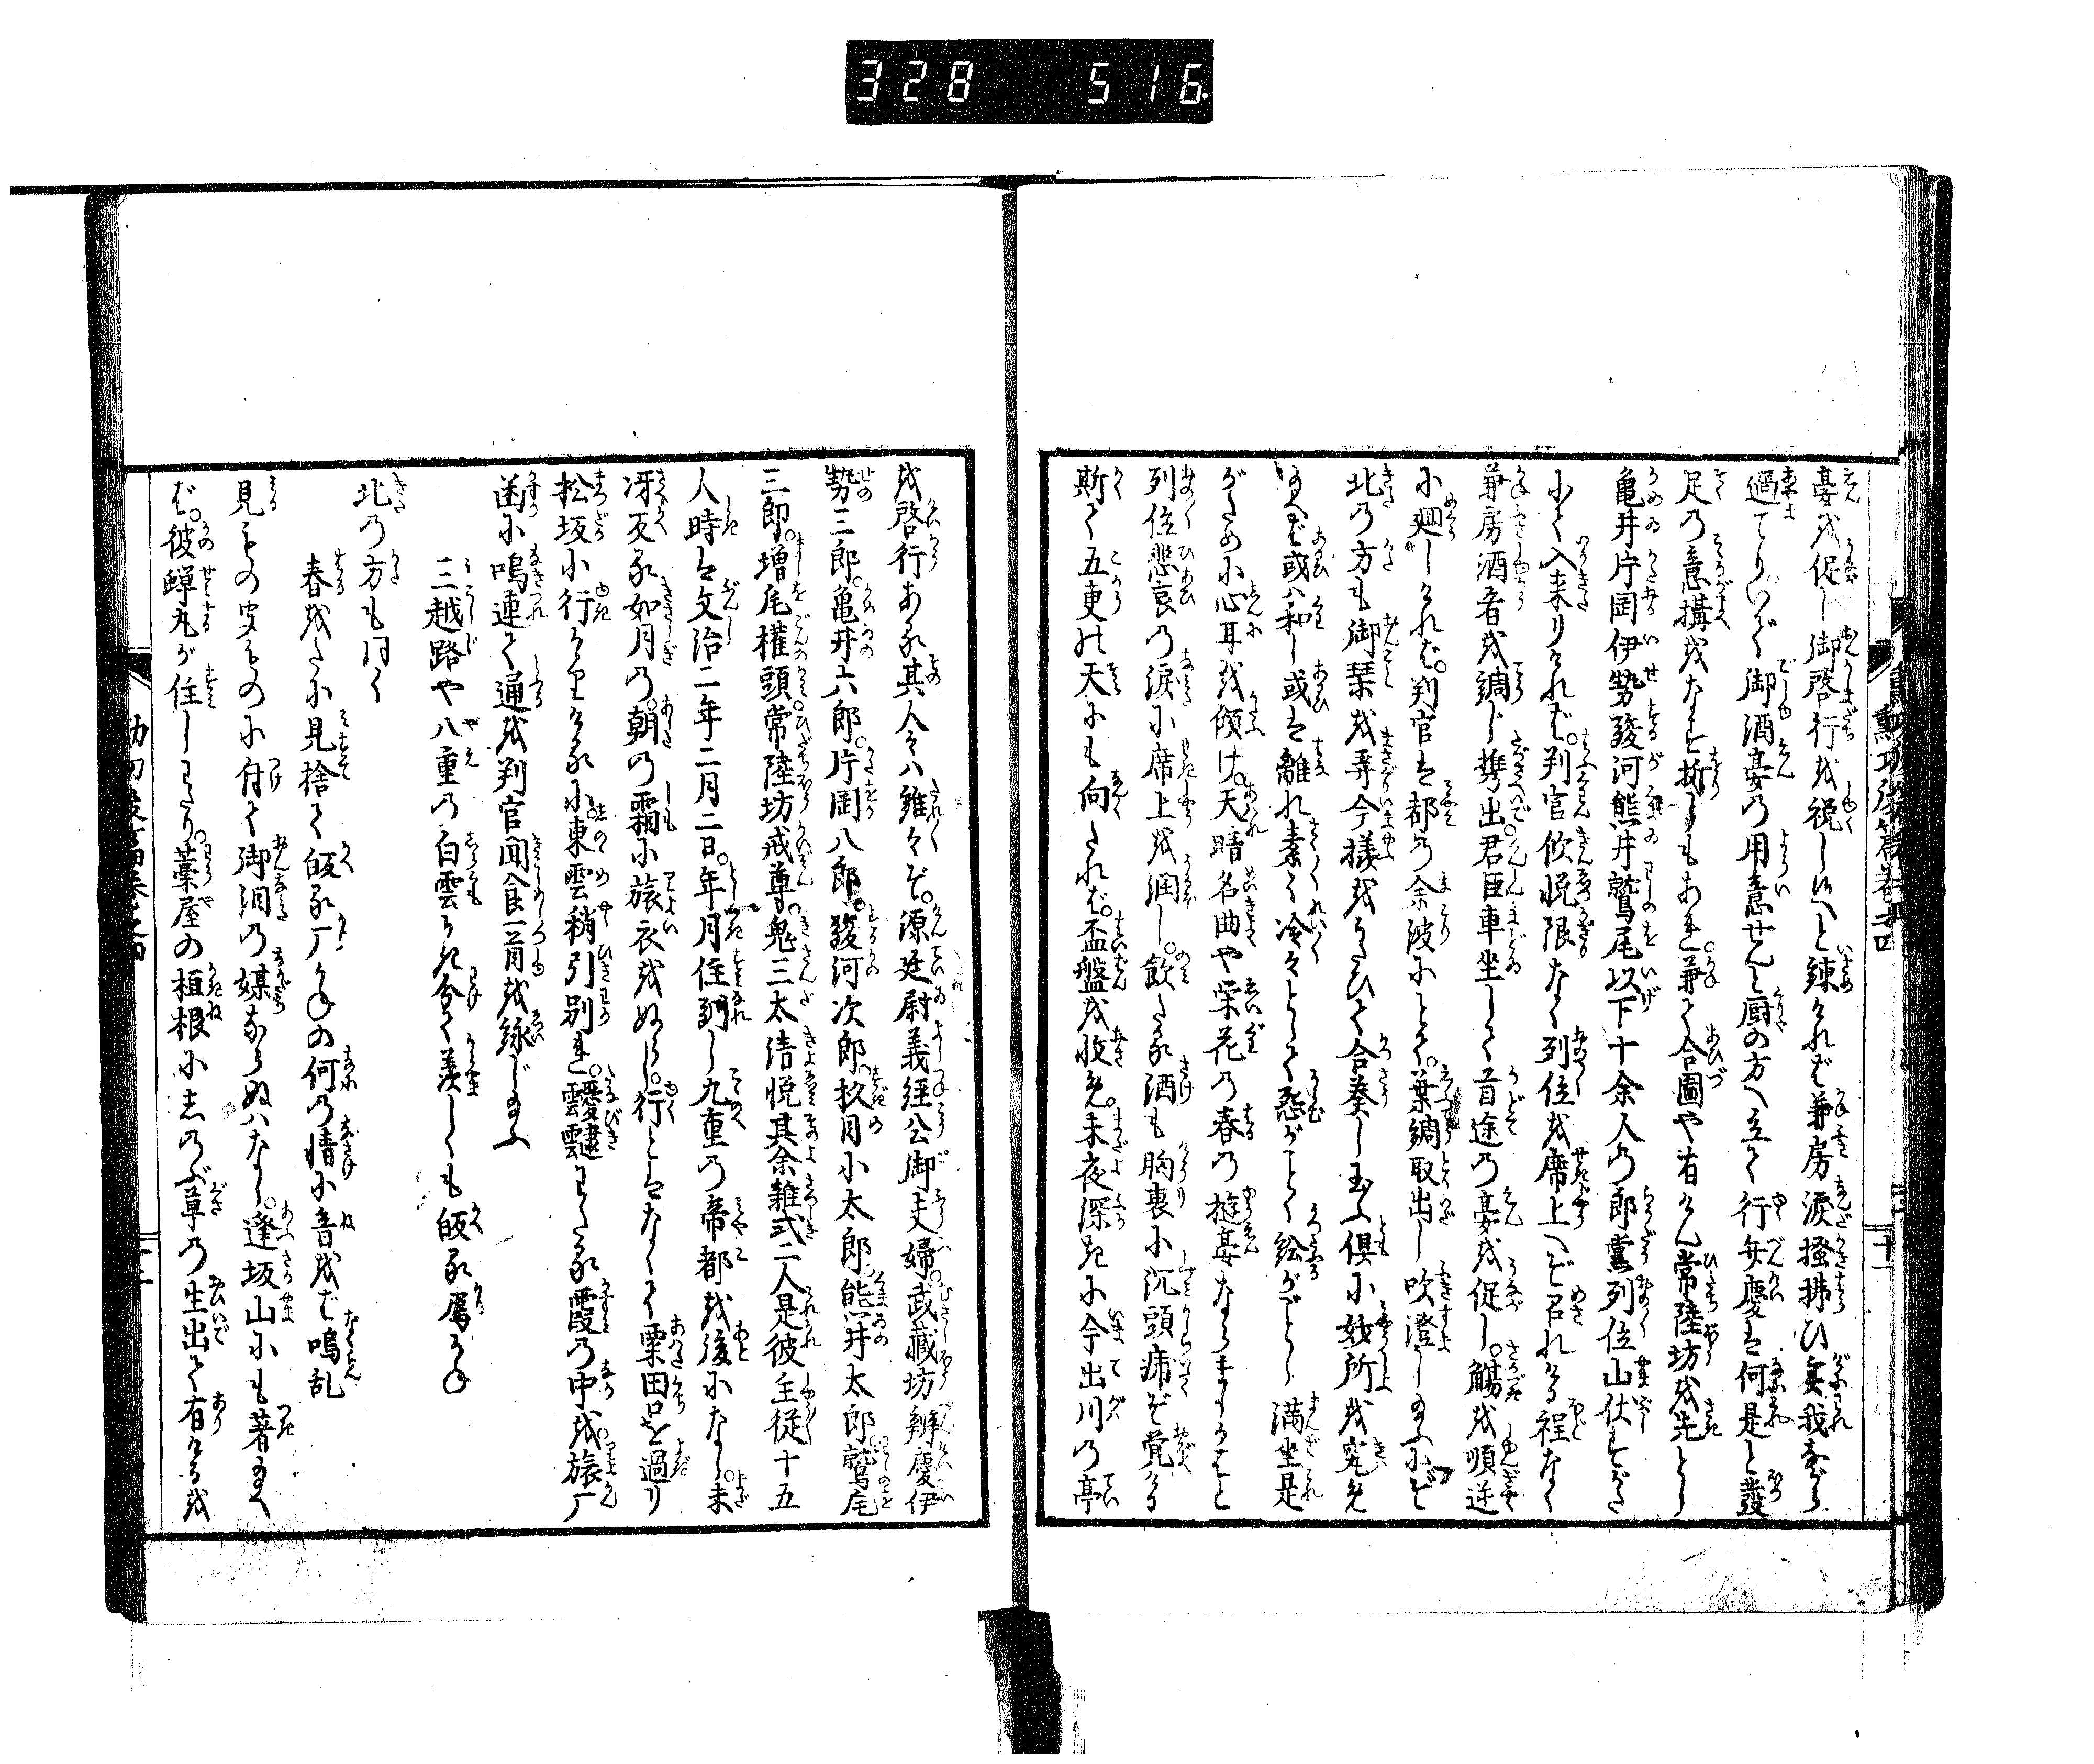 328 516
宴を促し御啓行を祝し候へと諫ければ兼房涙掻拂ひ実我ながら
過てりいざ御酒宴の用意せんと厨の方へ立て行弁慶は何是と發
足の意搆をなす折しもあれ兼て合圖や有けん常陸坊を先とし
亀井片岡伊勢駿河熊井鷲尾以下十余人の郎黨列位山伏すがた
にて入来りければ判官欣悦限なく列位を席上へぞ召れける程なく
兼房酒肴を調じ携出君臣車坐して首途の宴を促し觴を順逆
に廻しければ判官は都の余波にとて葉調取出し吹澄し給ふにぞ
北の方も御琴を弄今様をうたひて合奏し玉ふ倶に妙所を究め
給へば或ハ和し或は離れ素々冷々として怨がごとく訟がごとし満坐是
がために心耳を傾け天晴名曲や栄花の春の遊宴ならましかばと
列位悲哀の涙に席上を潤し飲たる酒も胸裏に沉頭痛ぞ覚ける
斯て五更の天にも向たれば盃盤を收め未夜深きに今出川の亭
を啓行ある其人々ハ誰々ぞ源廷尉義経公御夫婦武藏坊辨慶伊
勢三郎亀井六郎片岡八郎駿河次郎杉目小太郎熊井太郎鷲尾
三郎増尾權頭常陸坊戒尊鬼三太清悦其余雜式二人是彼主従十五
人時は文治二年二月二日年月住馴し九重の帝都を後になし未
冴返る如月の朝の霜に旅衣をぬらし行ともなくて粟田口を過り
松坂に行ける小東雲稍引別れ靉靆わたる霞の中を旅厂
函に鳴連て通を判官聞食一首を詠じ給ふ
三越路や八重の白雲かき分て羨しくも皈る鴈かね
北の方も同く
春をたに見捨て皈る厂かねの何の情に音をば鳴乱
見ものの皮ものに付て御泪の媒ならぬハなし逢坂山にも著給へ
ば彼蝉丸が住しわたり藁屋の垣根に志のぶ草の生出て有けるを